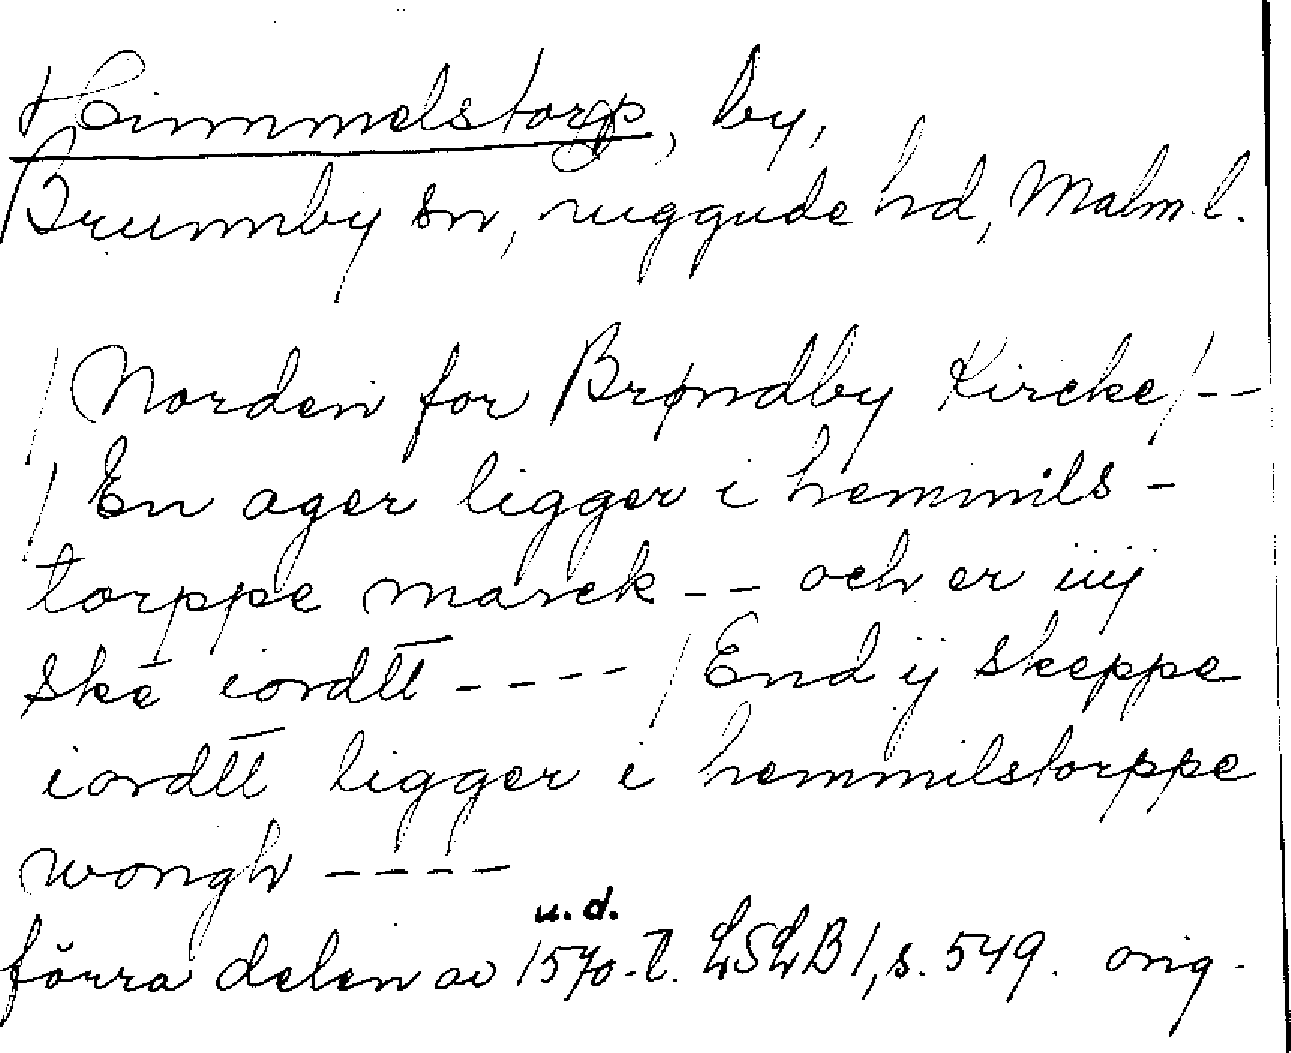 Himmelstorp, by,
Brunnby sn, Luggude hd, Malm. l.
/Norden for Brøndby Kircke/--
/En ager ligger i hemmils-
torppe marck -- och er iiij
Ske iordtt ---- /End ij skeppe
iordtt ligger i hemmilstorppe
wongh ----
u. d.
förra delen av 1570-t. LSLB 1, s. 549. orig.